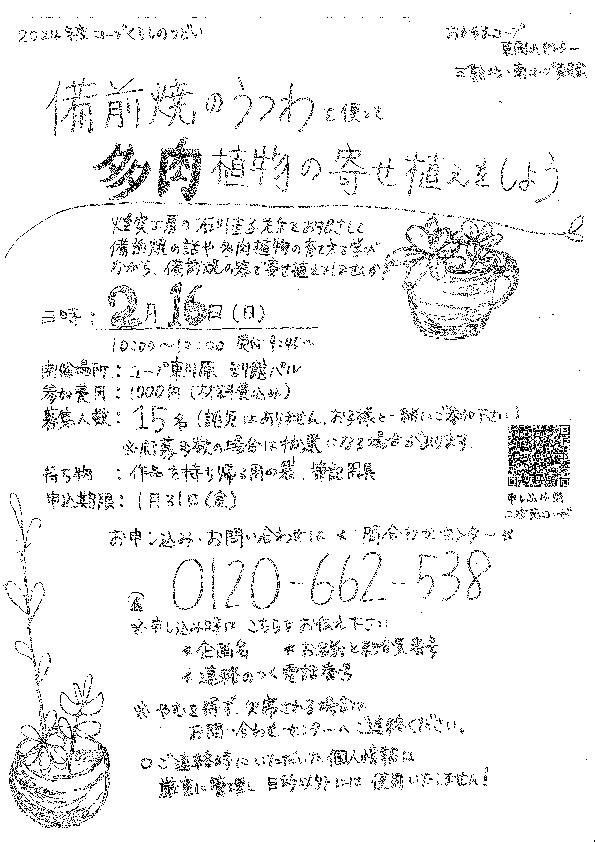 2024年度 コープくらしのつどい
おかやまコープ
備前焼のうつわを使って
多肉植物の寄せ植えをしよう
備前焼の話や多肉植物の育て方を学び
ながら、備前焼の器で寄せ植えしませんか?
日時：2月16日(日)
10:00～12:00 受付 9:45～
開催場所：コープ東川原 別館パル
参加費用：1000円(材料費込み)
募集人数：15名(託児はありません。お子様と一緒にご参加下さい)
※応募多数の場合は抽選になる場合があります。
持ち物：作品を持ち帰る用の袋、筆記用具
申込期限：1月31日(金)
申し込み用
二次元コード
お申し込み・お問い合わせは 問合わせセンターは
0120-662-538
※申し込み時は こちらをお伝え下さい
*企画名 *お名前と組合員番号
*連絡のつく電話番号
※ やむを得ず、欠席される場合は
お問い合わせセンターへご連絡ください。
○ご連絡時にいただいた個人情報は
厳重に管理し 目的以外には 使用いたしません!